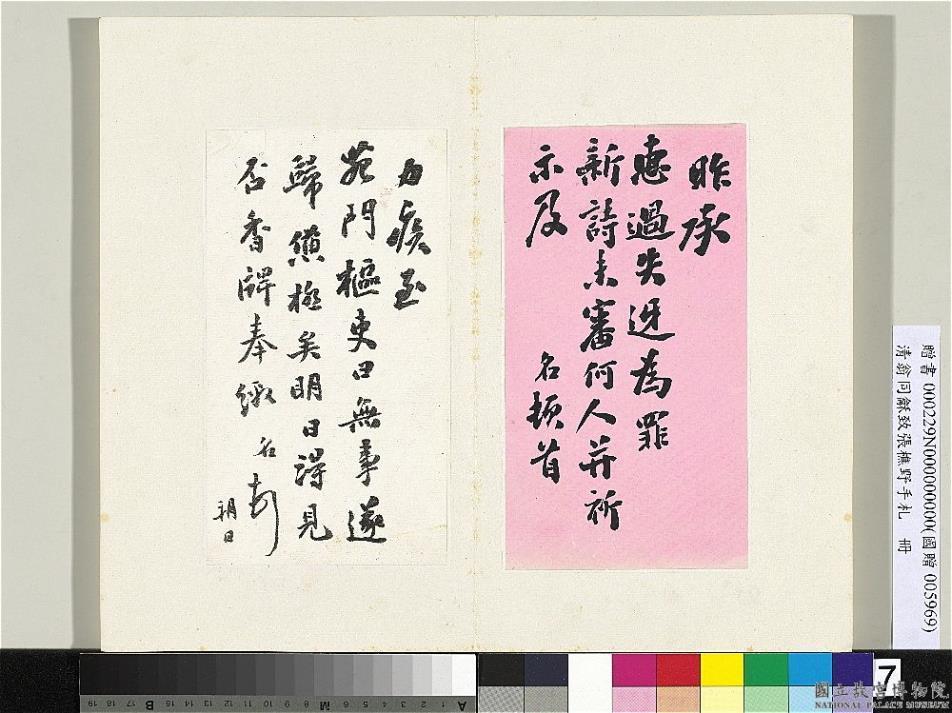 昨承
惠過失迓為罪
新詩未審何人并祈
示及
名頓首
力疾至
苑門樞吏曰無事遂
歸憊極矣明日得見
否希牌奉繳名
朔日
贈書 000229N000000000(國贈 005969)
清翁同龢致張樵野手札 冊
7
國立故宮博物院
NATIONAL PALACE MUSEUM
A 1 2 3 4 5 6 M 8 9 10 11 12 13 14 15 B 17 18 19